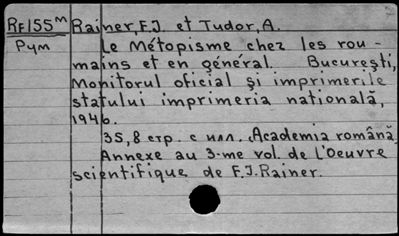 RF155ᵐ Rainer, F.J. et Tudor, A.
Рум Le Métopisme chez les rou-
mains et en général. Bucureşti,
Monitorul oficial şi imprimerile
statului imprimeria natională,
1946.
35,8 стр. с илл. (Academia română
Annexe au 3-me vol. de L'Oeuvre
scientifique de F.J. Rainer.